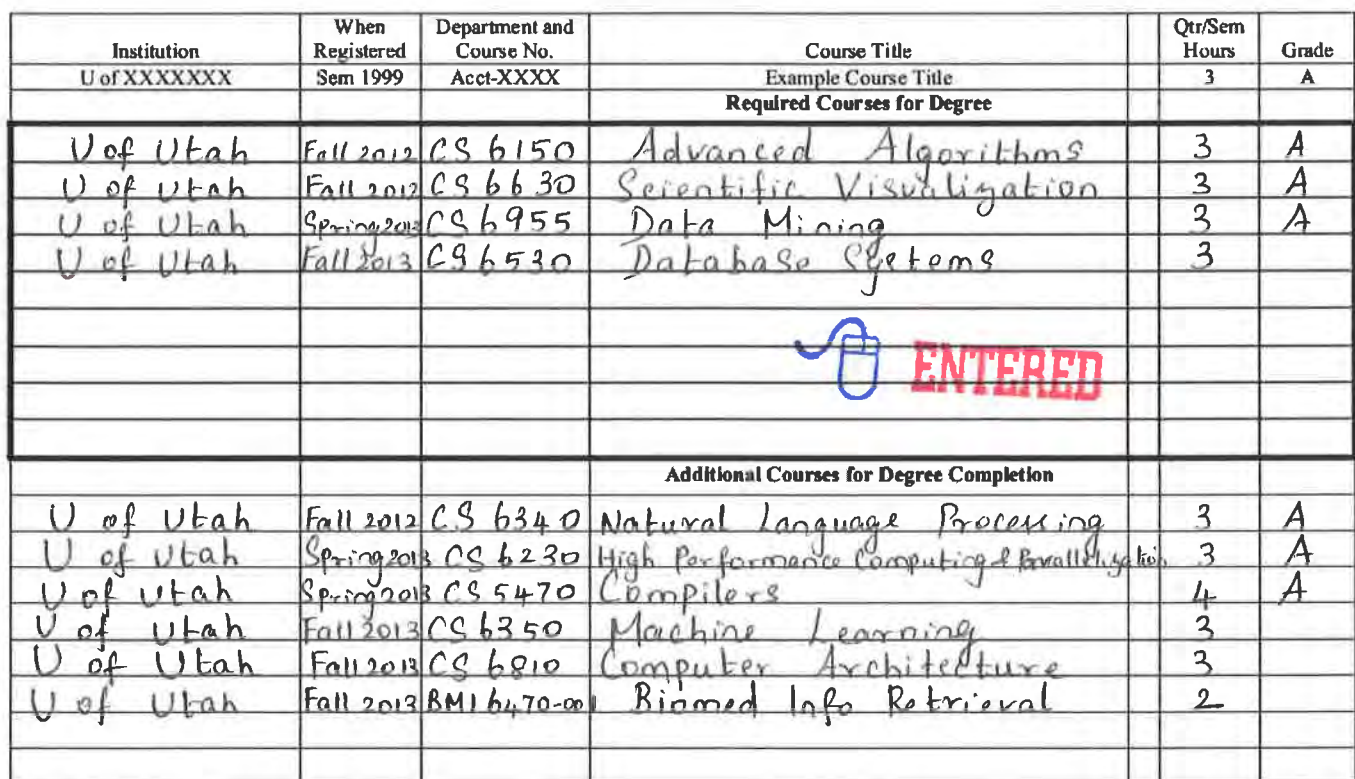 Institution When Registered Department and Course No. Course Title Qtr/Sem Hours Grade
U of XXXXXXX Sem 1999 Acct-XXXX Example Course Title 3 A
Required Courses for Degree
U of Utah Fall 2012 CS 6150 Advanced Algorithms 3 A
U of Utah Fall 2012 CS 6630 Scientific Visualization 3 A
U of Utah Spring 2013 CS 6955 Data Mining 3 A
U of Utah Fall 2013 CS 6530 Database Systems 3
ENTERED
Additional Courses for Degree Completion
U of Utah Fall 2012 CS 6340 Natural Language Processing 3 A
U of Utah Spring 2013 CS 6230 High Performance Computing & Parallelization 3 A
U of Utah Spring 2013 CS 5470 Compilers 4 A
U of Utah Fall 2013 CS 6350 Machine Learning 3
U of Utah Fall 2013 CS 6810 Computer Architecture 3
U of Utah Fall 2013 BMI 6470-001 Biomed Info Retrieval 2